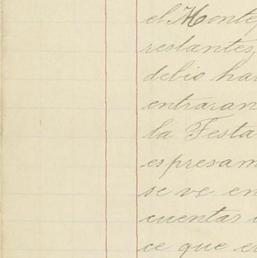 el Monte
restantes,
debio ha
entraran
la Testa
espresam
se ve en
cuentas
ce que e